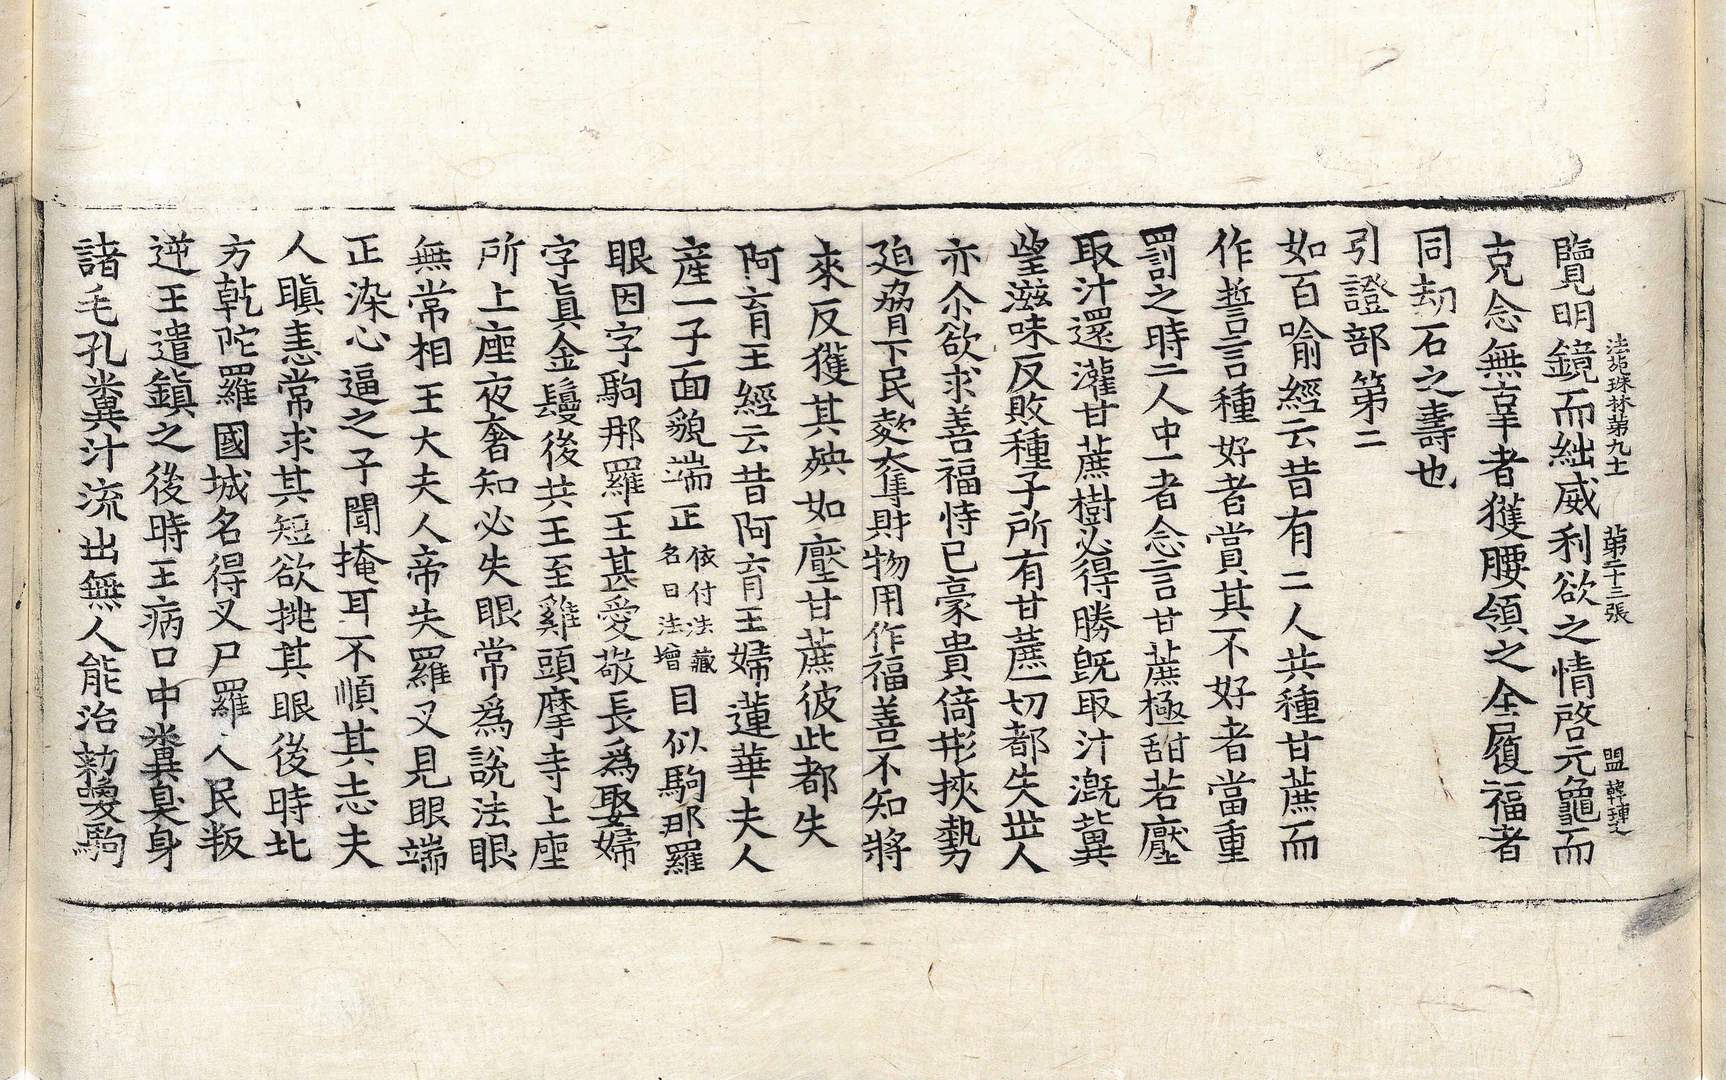 法苑珠林第九十 第二十三張 盟
覽明鏡而絀威利欲之情啓元龜而
克念無辜者獲腰領之全履福者
同劫石之壽也
引證部第二
如百喻經云昔有二人共種甘蔗而
作誓言言種好者賞其不好者當重
罰之時二人中一者念言甘蔗極甜若壓
取汁還灌甘蔗樹必得勝旣取汁漑冀
望滋味反敗種子所有甘蔗一切都失世人
亦尒欲求善福恃己豪貴倚形挾勢
迫脅下民欻奪財物用作福善不知將
來反獲其殃如壓甘蔗彼此都失
阿育王經云昔阿育王婦蓮華夫人
産一子面貌端正依付法藏名曰法增目似駒那羅
眼因字駒那羅王甚愛敬長爲娶婦
字眞金鬘後共王至雞頭摩寺上座
所上座夜奢知必失眼常爲說法眼
無常相王大夫人帝失羅叉見眼端
正染心逼之子聞掩耳不順其志夫
人瞋恚常求其短欲挑其眼後時北
方乾陀羅國城名得叉尸羅人民叛
逆王遣鎮之後時王病口中糞臭身
諸毛孔糞汁流出無人能治勑喚駒